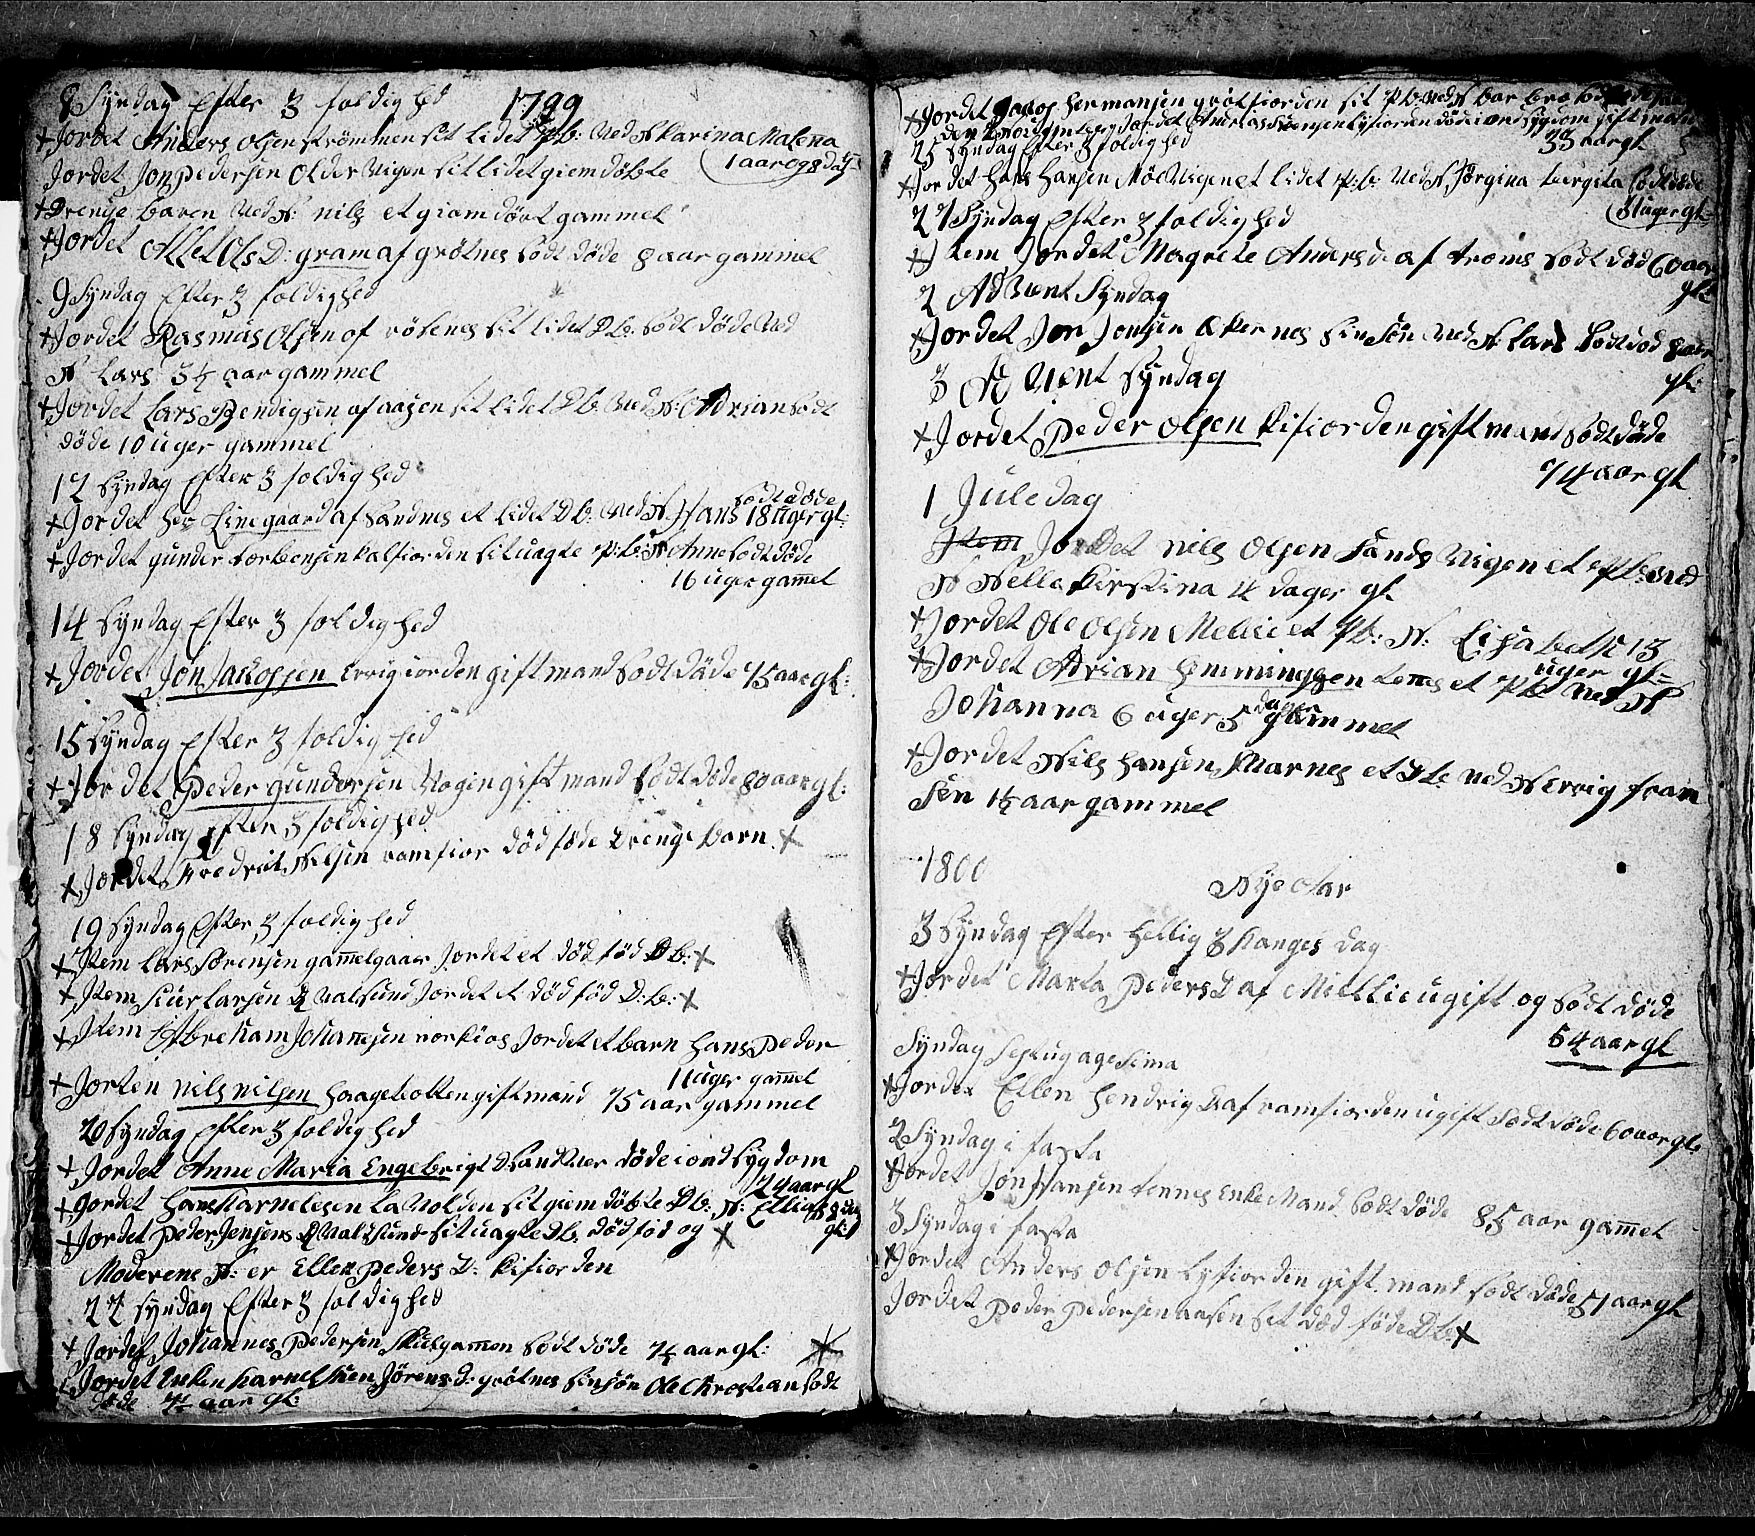 8 Syndag Efter 3 foldighed 1799
+ Jordet Anders Olsen strømmen sit lidet P.b: Ved N Karina Malena
(1 aar og 8 dag
Jordet Jon Pedersen Older Vigen sit lidet giemdøbte
+ Drenge baren Ved N: nils et giamdørt gammel
+ Jordet Ols D: gram af grøtnes Født døde 8 aar gammel
9 Syndag Efter 3 foldighed
+ Jordet Rasmus Olsen af røtenes sit lidet D b. Født døde Ved
N Lars 3½ aar gammel
+ Jordet Lars Bendigsen af aasen sit lidet D b. Ved N: Adrian Født
døde 10 uger gammel
12 Syndag Efter 3 foldighed
+ Jordet her Linegaard af Sandnes et lidet D b: Ved N. Hans 18 uger gl:
født døde
+ Jordet gunder torbensen Kalfiorden sit uagte P:b: N Anne Født døde
16 uger gam̄el
14 Syndag Efter 3 foldighed
+ Jordet Jon Jakopsen giftmand Født døde 75 aar gl:
15 Syndag Efter 3 foldighed
+ Jordet Peder gundersen Vogin giftmand Født døde 80 aar gl:
18 Syndag Efter 3 foldighed
+ Jordet Fredrik Nilsen ramfior død føde Drenge barn +
19 Syndag Efter 3 foldighed
+ Item Lars Sørensen gam̄elgaar Jordet et død fød D b: +
+ Item siur Larsen Qvalsund Jordet et død fød D:b: +
+ Item Abreham Johan̄sen Jordet et barn Hans Peder
11 uger gam̄el
+ Jorten nils nilsen Haagebotten giftmand 75 aar gammel
20 Syndag Efter 3 foldighed
+ Jordet Anne Maria Engebrigt D døde i ond sygdom
24 aar gl
+ Jordet Hans Karnelesen La Volden sit giemdøbte D b: N: Ellias 8
gl:
+ Jordet Peder Jensens Qvalsund sit uagte D b. død fød og +
Moderene N: er Ellen Peders D: Kifiorden
22 Syndag Efter 3 foldighed
+ Jordet Johannes Pedersen Skulgammen Født døde 7½ aar gl: +
Jordet Enken Karnelken Jørens D: grøtnes sin søn Ole Christian Født
døde 7½ aar gl:
+ Jordet Jacop Hermansen grøtfiorden sit P.b: Ved N Barbro
Jordet Andreas Lysfiorden døde i ond sygdom gift mand
33 aar gl
25 Syndag Efter 3 foldighed
+ Jordet Hans Hansen et lidet P:b: Ved N Jørgina bergita Født døde
8 uger gl:
27 Syndag Efter 3 foldighed
+ Item Jordet Magrete Anders D af troms Født død 60 aar
gl:
2 Advent Syndag
+ Jordet Jon Jonsen Aker nes sin søn Ved N Lars Født død 8 aar
gl:
3 Advent Syndag
+ Jordet Peder Olsen Kifiorden giftmand Født døde
74 aar gl
1 Juledag
Item Jordet nils Olsen Sands Vigen et P b: Ved
N Nella Kirstina 4 dager gl
+ Jordet Ole Olsen et P b: N: Lisabeth 13
uger gl:
+ Jordet Adrian Hemmingsen et P b Ved N
Johanna 6 uger 5 dager gammel
+ Jordet Nils Hansen Skarnes et D b. Ved N Errig fran
sen 1½ aar gammel
1800
Nye Aar
3 Syndag Efter Hellig 3 Kanges dag
+ Jordet Marta Peders D af ugift og Født døde
54 aar gl
Syndag Septuagesima
+ Jordet Ellen Hendrig D af ramfiorden ugift Født døde 60 aar gl:
2 Syndag i fasta
+ Jordet Jon Hansen tennes Enke Mand Født døde 85 aar gam̄el
3 Syndag i fasta
+ Jordet Anders Olsen Lysfiorden gift mand Født døde 51 aar gl
Jordet Peder Pedersen aasen sit død føde D b: +